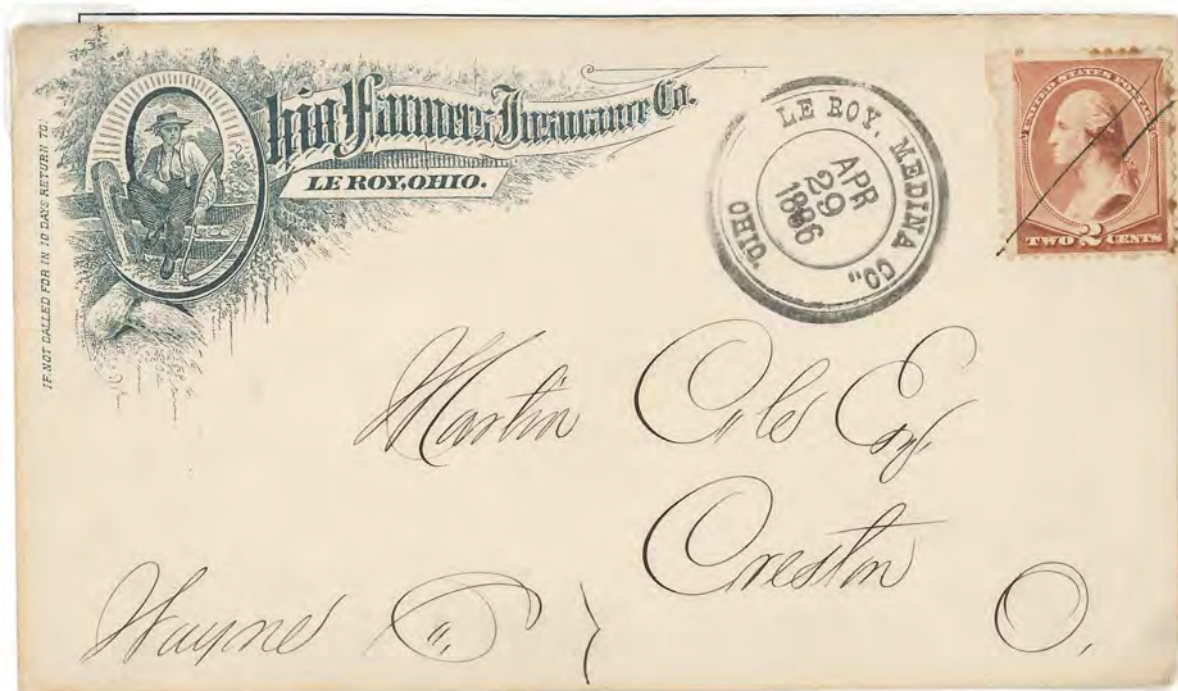 IF NOT CALLED FOR IN 10 DAYS RETURN TO:
Ohio Farmers Insurance Co.
LE ROY, OHIO.
LE ROY, MEDINA CO., OHIO.
APR
29
1886
UNITED STATES POSTAGE
TWO 2 CENTS
Martin Esq.
Creston
Wayne Co., O.